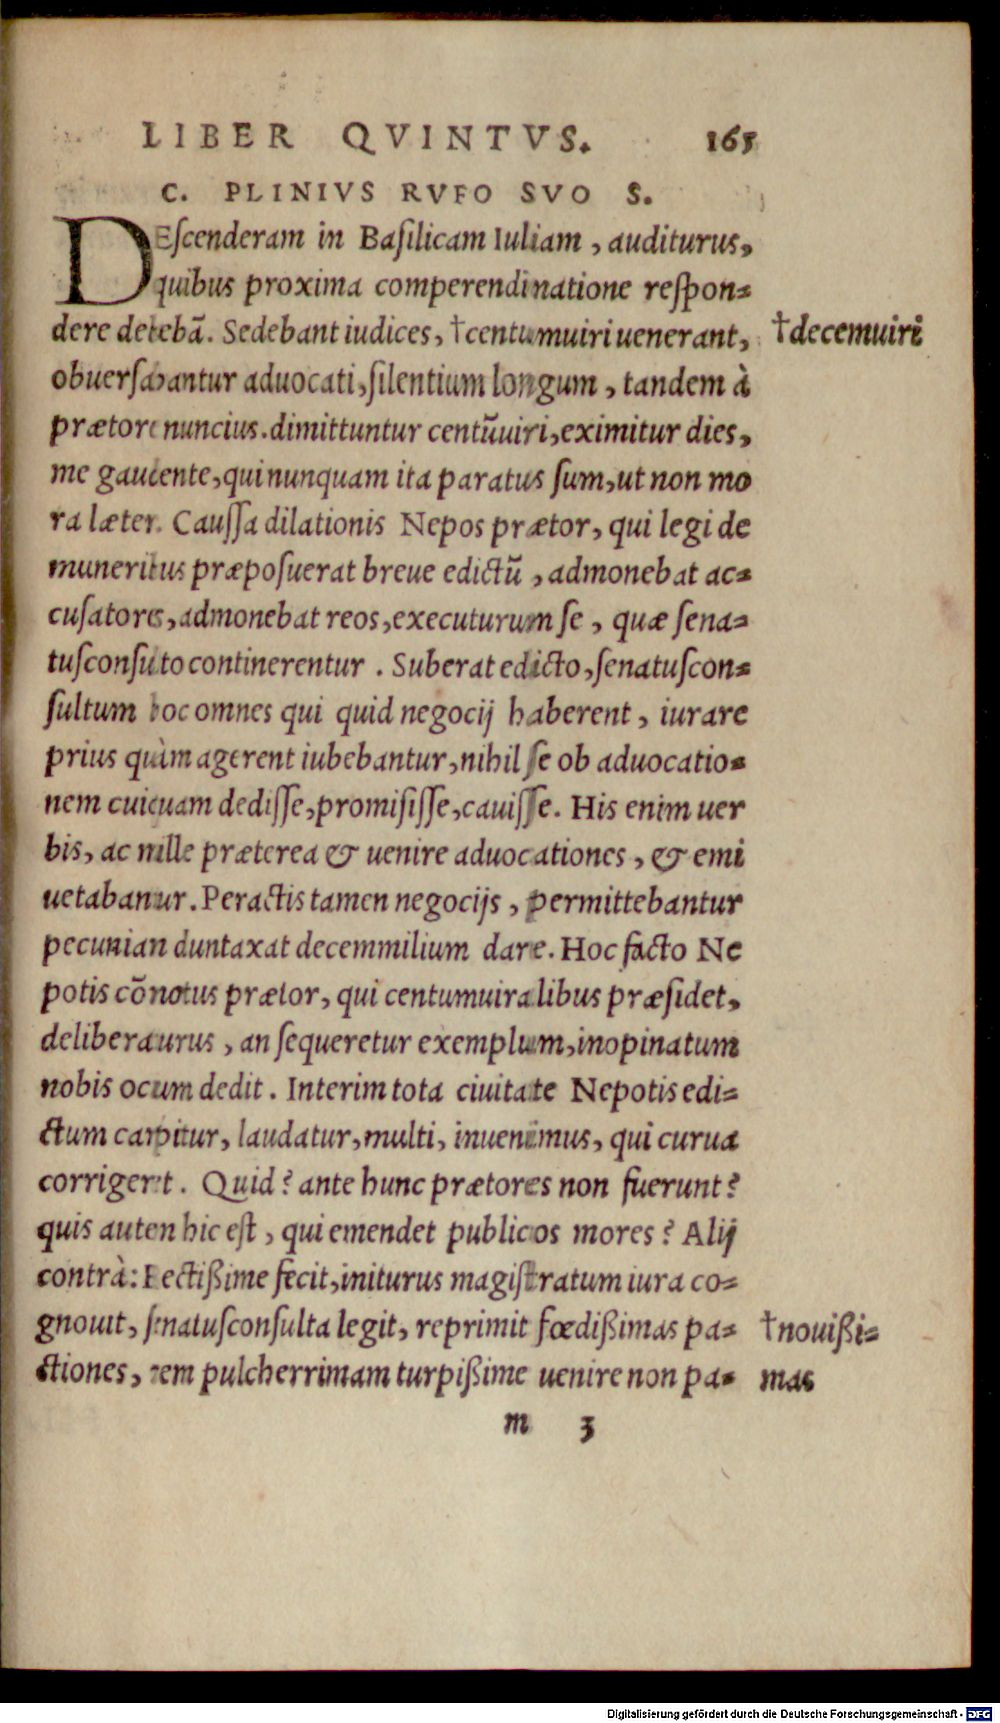 LIBER QVINTVS. 165
C. PLINIVS RVFO SVO S.
DEſcenderam in Baſilicam Iuliam, auditurus,
quibus proxima comperendinatione reſpon=
dere debebā. Sedebant iudices, †centumuiri uenerant, †decemuiri
obuerſabantur aduocati, ſilentium longum, tandem à
prætore nuncius. dimittuntur centūuiri, eximitur dies,
me gaudente, qui nunquam ita paratus ſum, ut non mo
ra læter. Cauſſa dilationis Nepos prætor, qui legi de
muneribus præpoſuerat breue edictū, admonebat ac=
cuſatores, admonebat reos, executurum ſe, quæ ſena=
tuſconſulto continerentur. Suberat edicto, ſenatuſcon=
ſultum hoc omnes qui quid negocij haberent, iurare
prius quàm agerent iubebantur, nihil ſe ob aduocatio=
nem cuiquam dediſſe, promiſiſſe, cauiſſe. His enim uer
bis, ac mille præterea & uenire aduocationes, & emi
uetabantur. Peractis tamen negocijs, permittebantur
pecuniam duntaxat decemmilium dare. Hoc facto Ne
potis cōmotus prætor, qui centumuiralibus præſidet,
deliberaturus, an ſequeretur exemplum, inopinatum
nobis ocium dedit. Interim tota ciuitate Nepotis edi=
ctum carpitur, laudatur, multi, inuenimus, qui curua
corrigeret. Quid? ante hunc prætores non fuerunt?
quis autem hic eſt, qui emendet publicos mores? Alij
contrà: Rectißime fecit, initurus magiſtratum iura co=
gnouit, ſenatuſconſulta legit, reprimit fœdißimas pa= †nouißi=
ctiones, rem pulcherrimam turpißime uenire non pa= mas
m 3
Digitalisierung gefördert durch die Deutsche Forschungsgemeinschaft - DFG